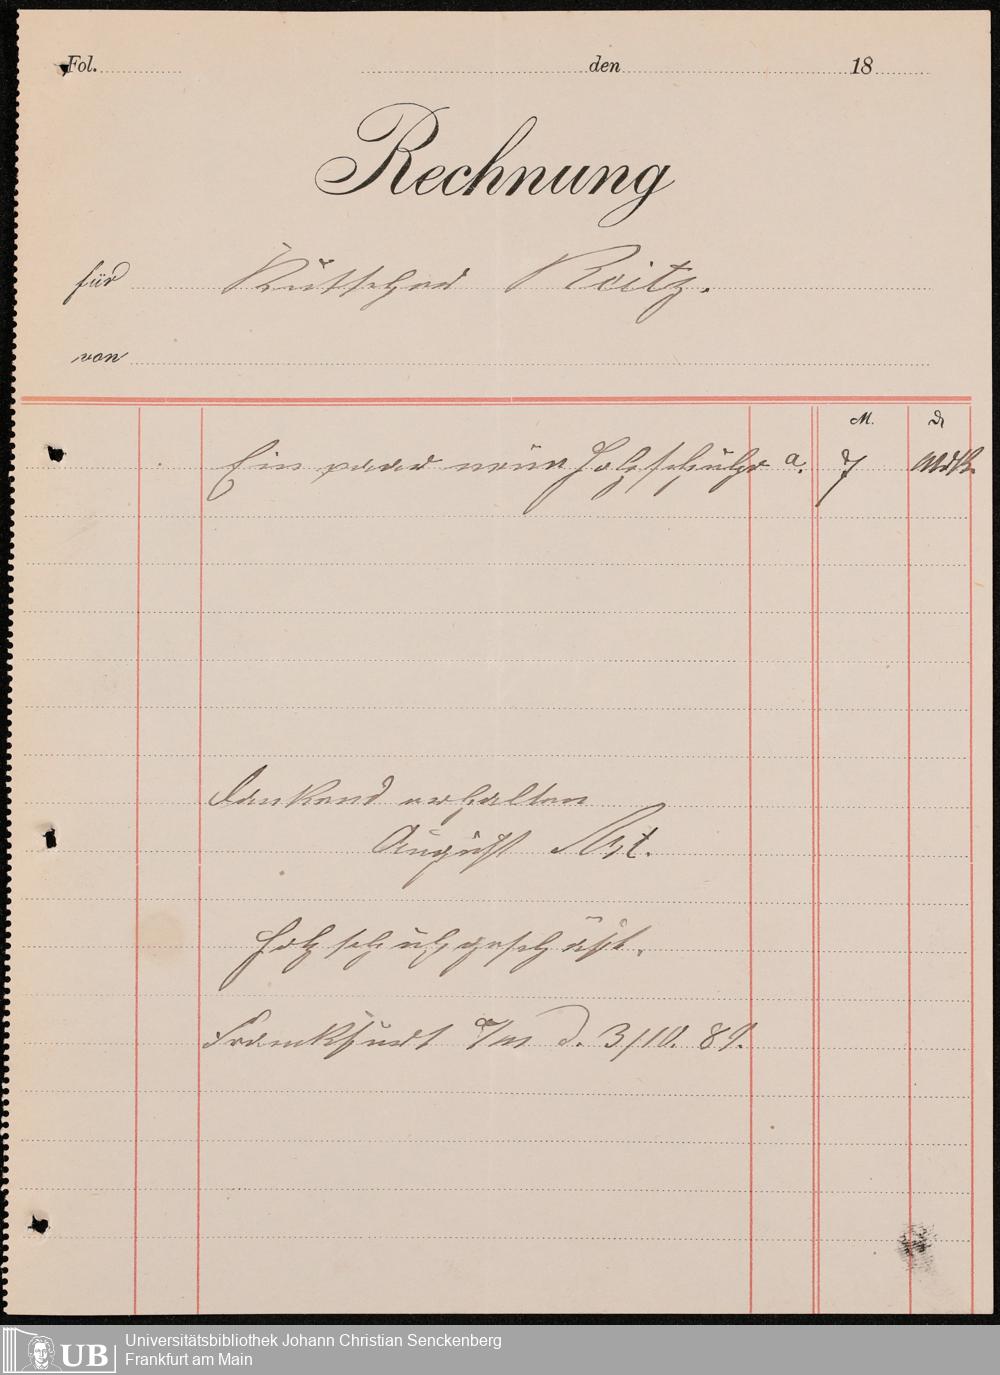 Fol. den 18
Rechnung
für Kutscher Reitz.
von
M. ₰
Ein paar neue Holzschuhe a. 7 Mrk.
Dankend erhalten
August
Holzschuhgeschäft.
Frankfurt a/m d. 3/10. 89.
UB
Universitätsbibliothek Johann Christian Senckenberg
Frankfurt am Main